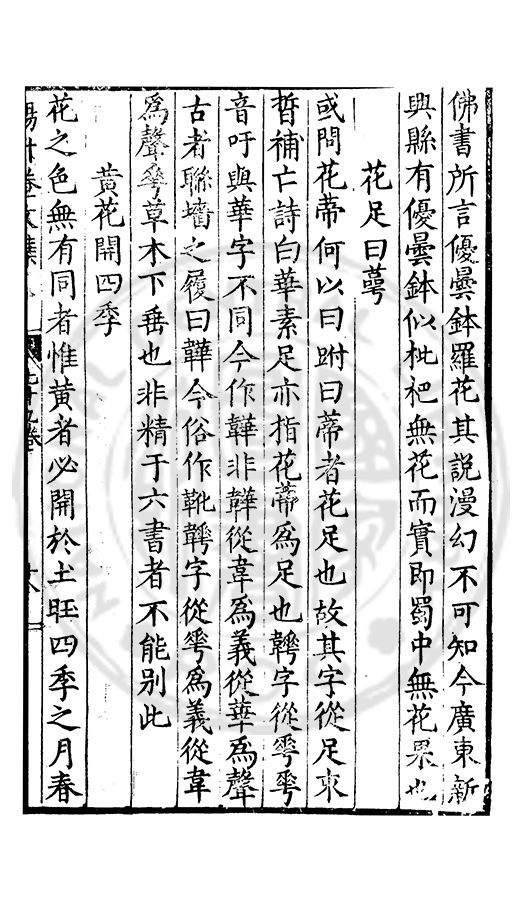 佛書所言優曇鉢羅花其說漫幻不可知今廣東新
興縣有優曇鉢似枇杷無花而實即蜀中無花果也
花足曰萼
或問花蔕何以曰跗曰蔕者花足也故其字從足束
晳補亡詩白華素足亦指花蔕爲足也韡字從䔢䔢
音吁與華字不同今作韡非韡從韋爲義從華爲聲
古者聯墻之履曰韡今俗作靴韡字從䔢爲義從韋
爲聲䔢草木下垂也非精于六書者不能别此
黄花開四季
花之色無有同者惟黄者必開於土旺四季之月春